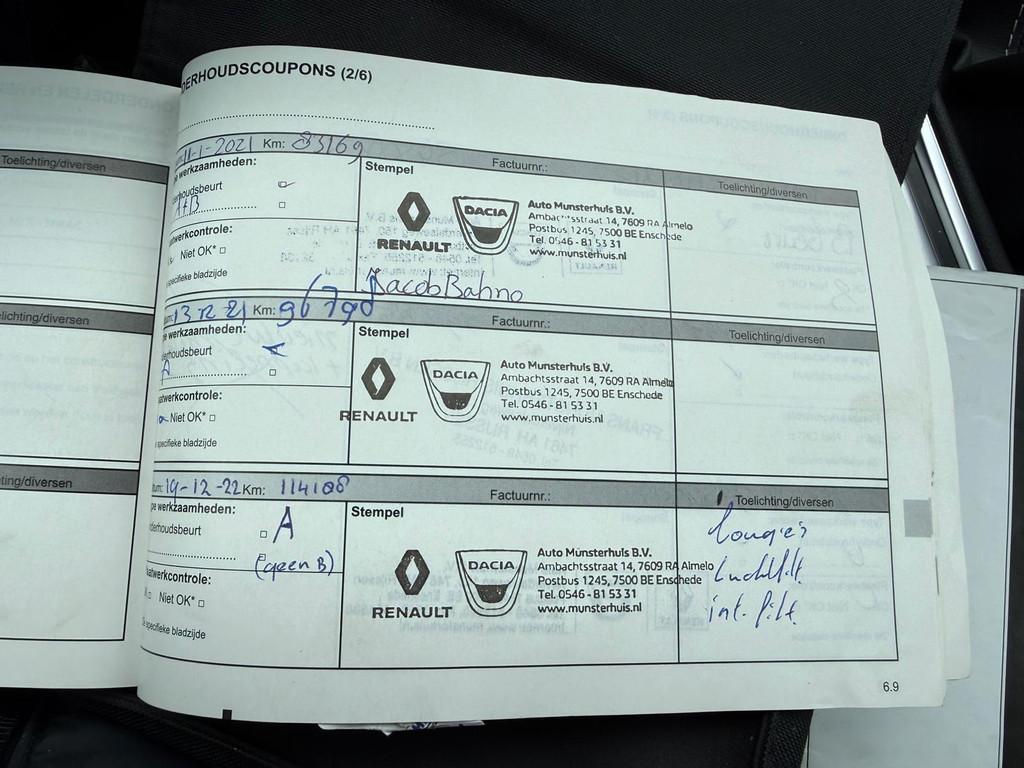 DERHOUDSCOUPONS (2/6)
Toelichting/diversen
11-1-2021 Km: 83169
Factuurnr.:
Toelichting/diversen
werkzaamheden:
Stempel
houdsbeurt
A+B
RENAULT
DACIA
Auto Munsterhuis B.V.
Ambachtsstraat 14, 7609 RA Almelo
Postbus 1245, 7500 BE Enschede
Tel. 0546 - 81 53 31
www.munsterhuis.nl
twerkcontrole:
Niet OK*
specifieke bladzijde
lichting/diversen
13 12 21 Km: 96790
Factuurnr.:
Toelichting/diversen
werkzaamheden:
Stempel
erhoudsbeurt
A
RENAULT
DACIA
Auto Munsterhuis B.V.
Ambachtsstraat 14, 7609 RA Almelo
Postbus 1245, 7500 BE Enschede
Tel. 0546 - 81 53 31
www.munsterhuis.nl
twerkcontrole:
Niet OK*
specifieke bladzijde
ting/diversen
tum: 19-12-22 Km: 114108
Factuurnr.:
Toelichting/diversen
pe werkzaamheden:
Stempel
derhoudsbeurt
A
(geen B)
RENAULT
DACIA
Auto Munsterhuis B.V.
Ambachtsstraat 14, 7609 RA Almelo
Postbus 1245, 7500 BE Enschede
Tel. 0546 - 81 53 31
www.munsterhuis.nl
bougies
Luchtfilt.
int. filt.
aatwerkcontrole:
Niet OK*
specifieke bladzijde
6.9